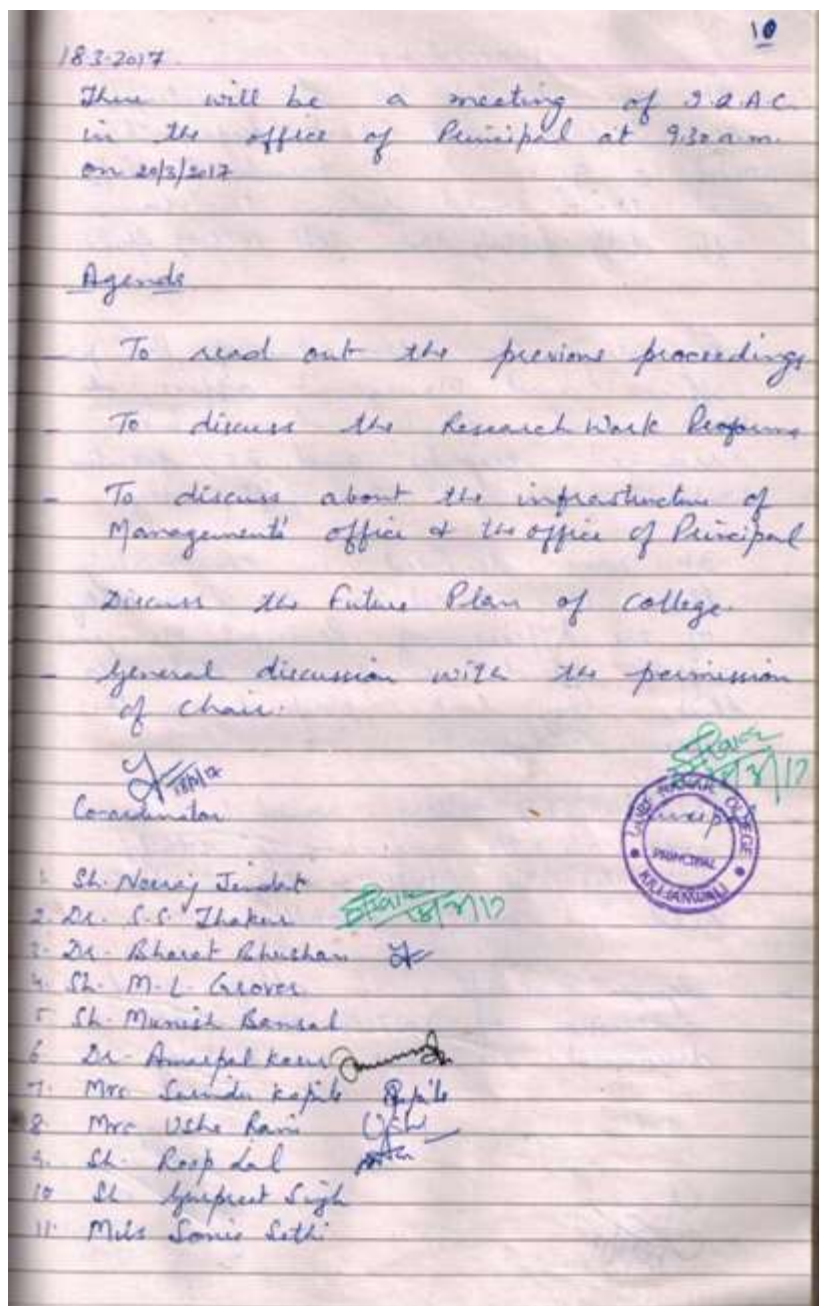 10
18.3.2017.
There will be a meeting of I.Q.A.C.
in the office of Principal at 9.30 a.m.
on 20/3/2017
Agenda
- To read out the previous proceedings
- To discuss the Research Work Proforma
- To discuss about the infrastructure of
Management's office & the office of Principal
- Discuss the Future Plan of college.
- General discussion with the permission
of chair.
18/3/17
Co-ordinator Principal
PRINCIPAL
COLLEGE
KILLIANWALI
1. Sh. Neeraj Jindal
2. Dr. S.S. Thakur 18/3/17
3. Dr. Bharat Bhushan
4. Sh. M.L. Grover
5 Sh. Munish Bansal
6 Dr. Amarpal Kaur
7. Mrs Surinder Kapila Kapila
8. Mrs Usha Rani Usha
9. Sh. Roop Lal
10 Sh Gurpreet Singh
11. Miss Sonia Sethi